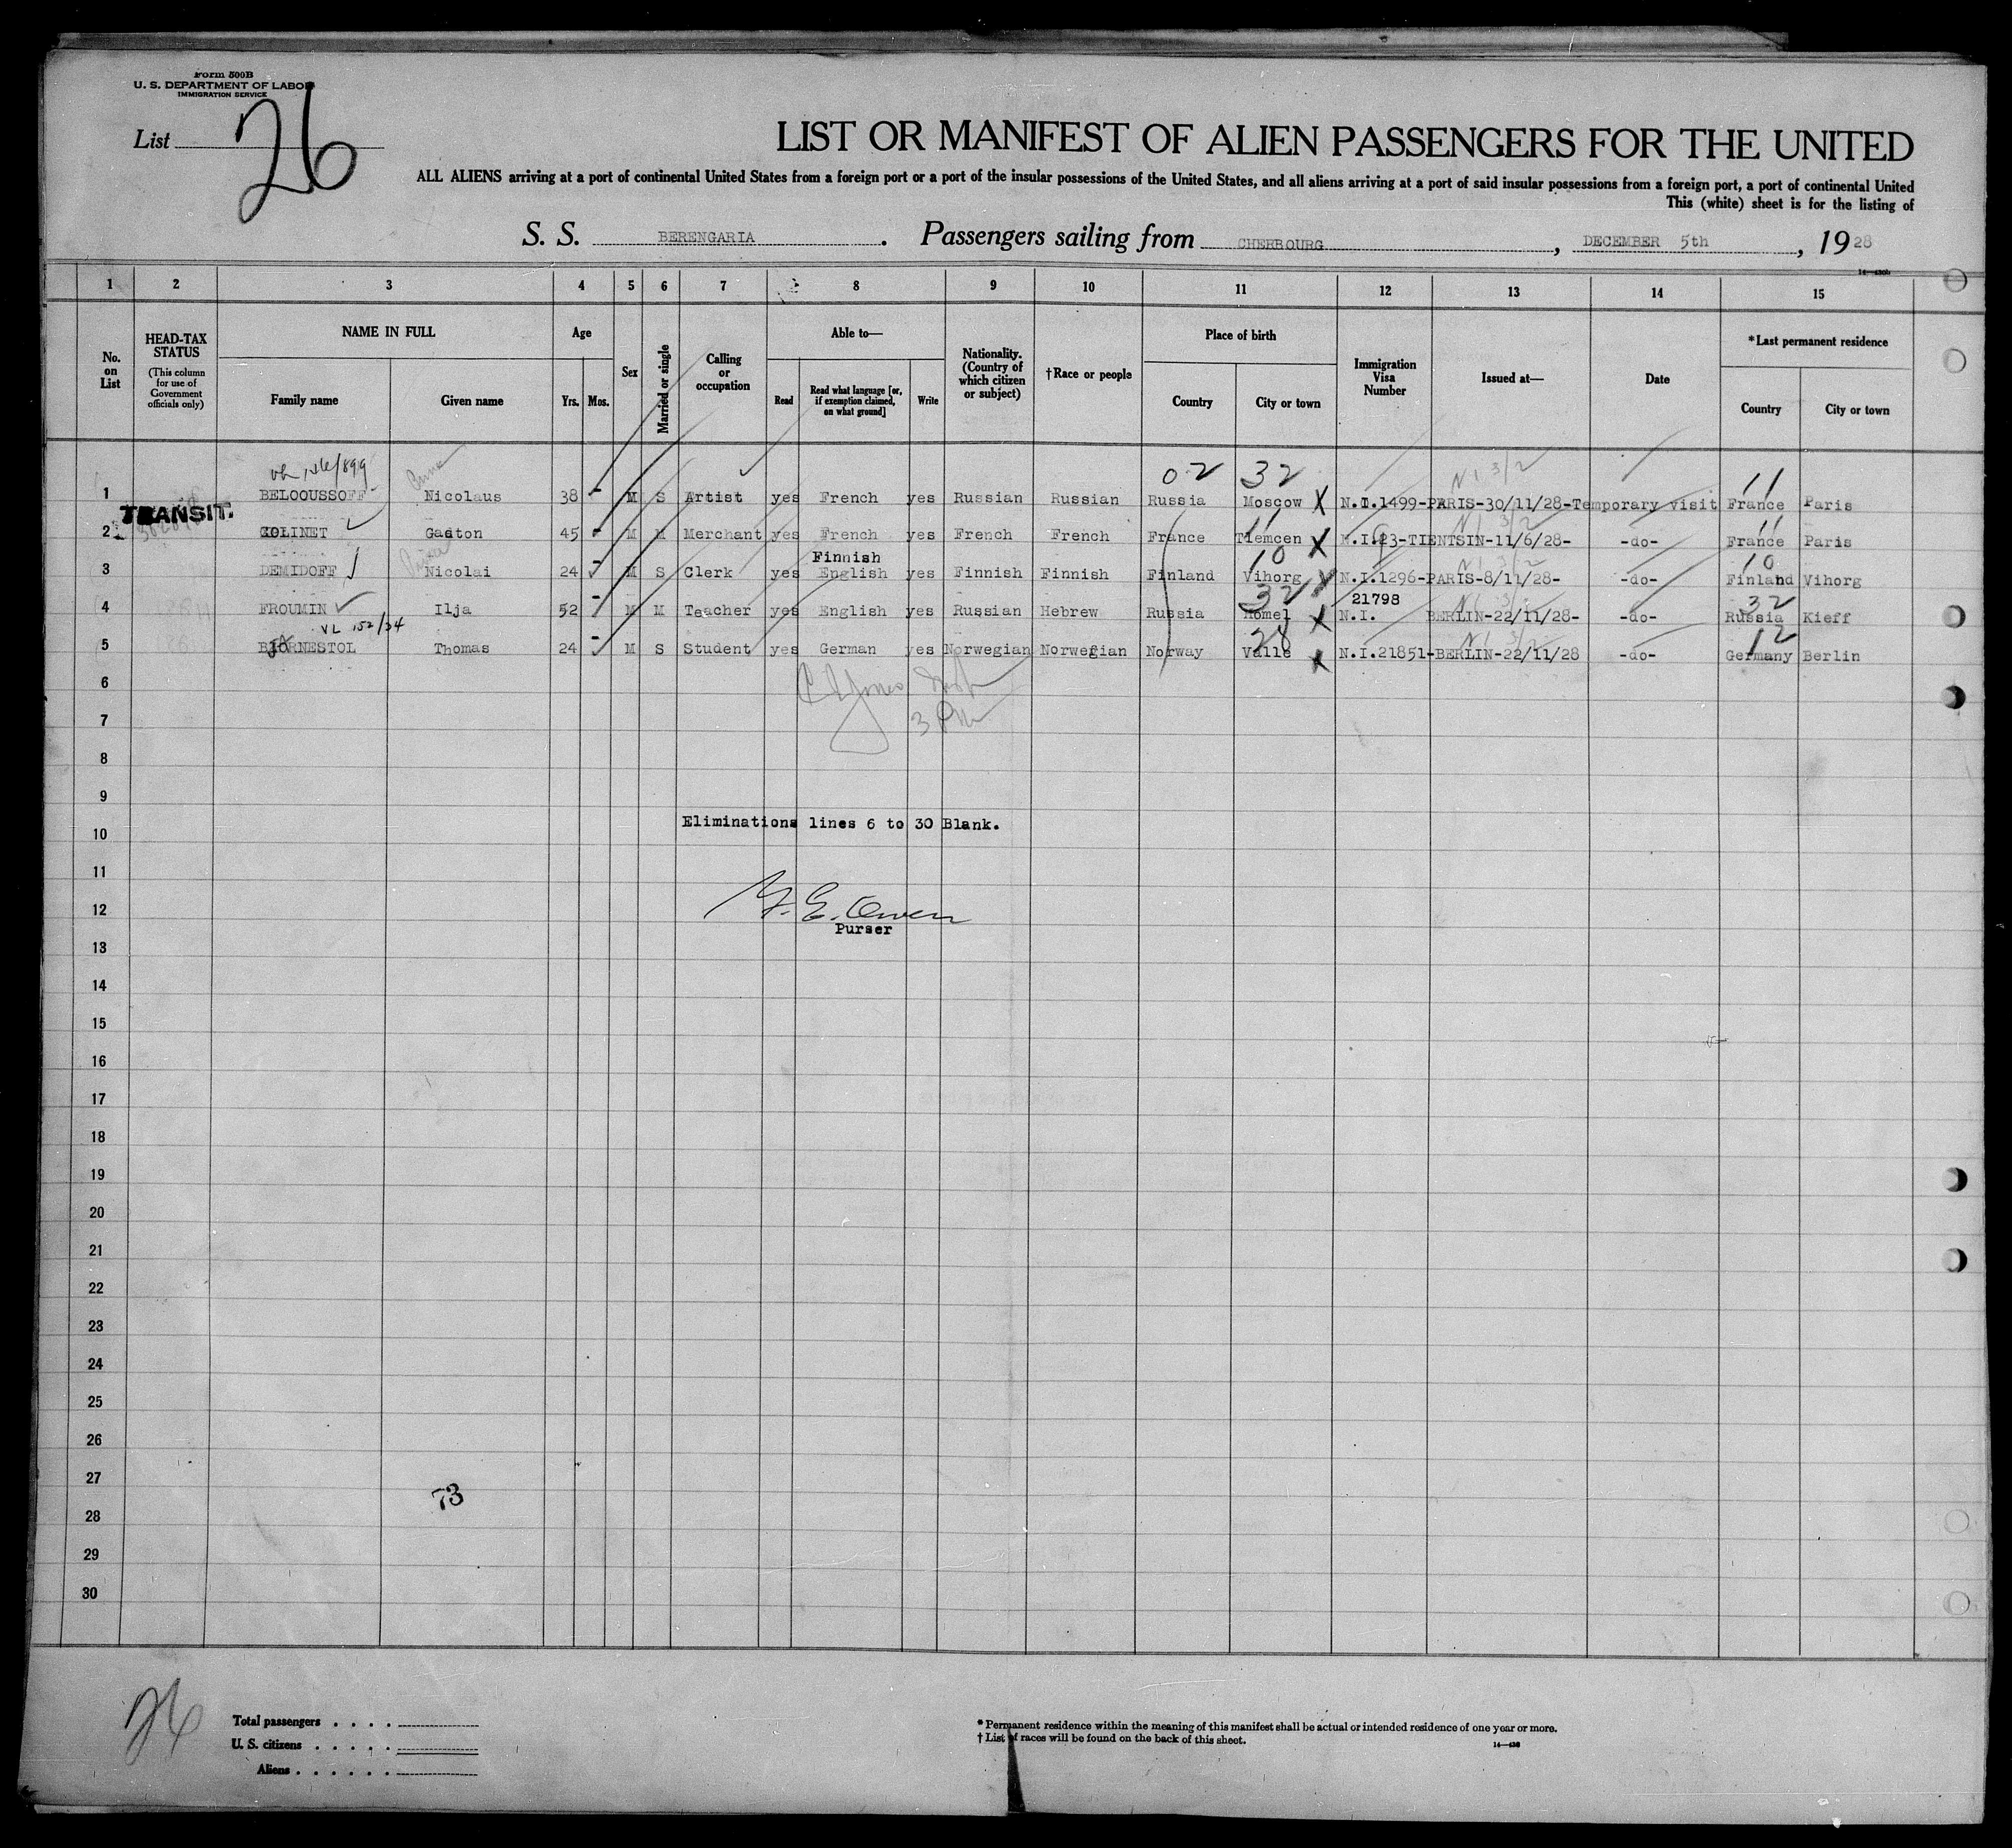 Form 500B
U. S. DEPARTMENT OF LABOR
IMMIGRATION SERVICE
List 26
LIST OR MANIFEST OF ALIEN PASSENGERS FOR THE UNITED
ALL ALIENS arriving at a port of continental United States from a foreign port or a port of the insular possessions of the United States, and all aliens arriving at a port of said insular possessions from a foreign port, a port of continental United
This (white) sheet is for the listing of
S. S. BERENGARIA. Passengers sailing from CHERBOURG, DECEMBER 5th, 1928
14—430b
1 2 3 4 5 6 7 8 9 10 11 12 13 14 15
No. on List
HEAD-TAX STATUS (This column for use of Government officials only)
NAME IN FULL
Family name Given name
Age
Yrs. Mos.
Sex
Married or single
Calling or occupation
Able to—
Read Read what language [or, if exemption claimed, on what ground] Write
Nationality. (Country of which citizen or subject)
†Race or people
Place of birth
Country City or town
Immigration Visa Number
Issued at—
Date
*Last permanent residence
Country City or town
02 32 N I 3/2 11
1 BELOOUSSOFF Nicolaus 38 M S Artist yes French yes Russian Russian Russia Moscow X N.I.1499-PARIS-30/11/28-Temporary visit France Paris
TRANSIT.
11 N I 3/2 11
2 COLINET Gaston 45 M M Merchant yes French yes French French France Tlemcen X N.I.23-TIENTSIN-11/6/28- -do- France Paris
Finnish 10 N I 3/2 10
3 DEMIDOFF Nicolai 24 M S Clerk yes English yes Finnish Finnish Finland Viborg X N.I.1296-PARIS-8/11/28- -do- Finland Viborg
32 21798 32
4 FROUMIN Ilja 52 M M Teacher yes English yes Russian Hebrew Russia Homel X N.I. BERLIN-22/11/28- -do- Russia Kieff
VL 152/34 28 N I 3/2 12
5 BJORNESTOL Thomas 24 M S Student yes German yes Norwegian Norwegian Norway Valle X N.I.21851-BERLIN-22/11/28 -do- Germany Berlin
6
7 3 PM
8
9
Eliminations lines 6 to 30 Blank.
10
11
12 Y. E. Owen
Purser
13
14
15
16
17
18
19
20
21
22
23
24
25
26
27
73
28
29
30
26
Total passengers
U. S. citizens
Aliens
* Permanent residence within the meaning of this manifest shall be actual or intended residence of one year or more.
† List of races will be found on the back of this sheet.
14—430